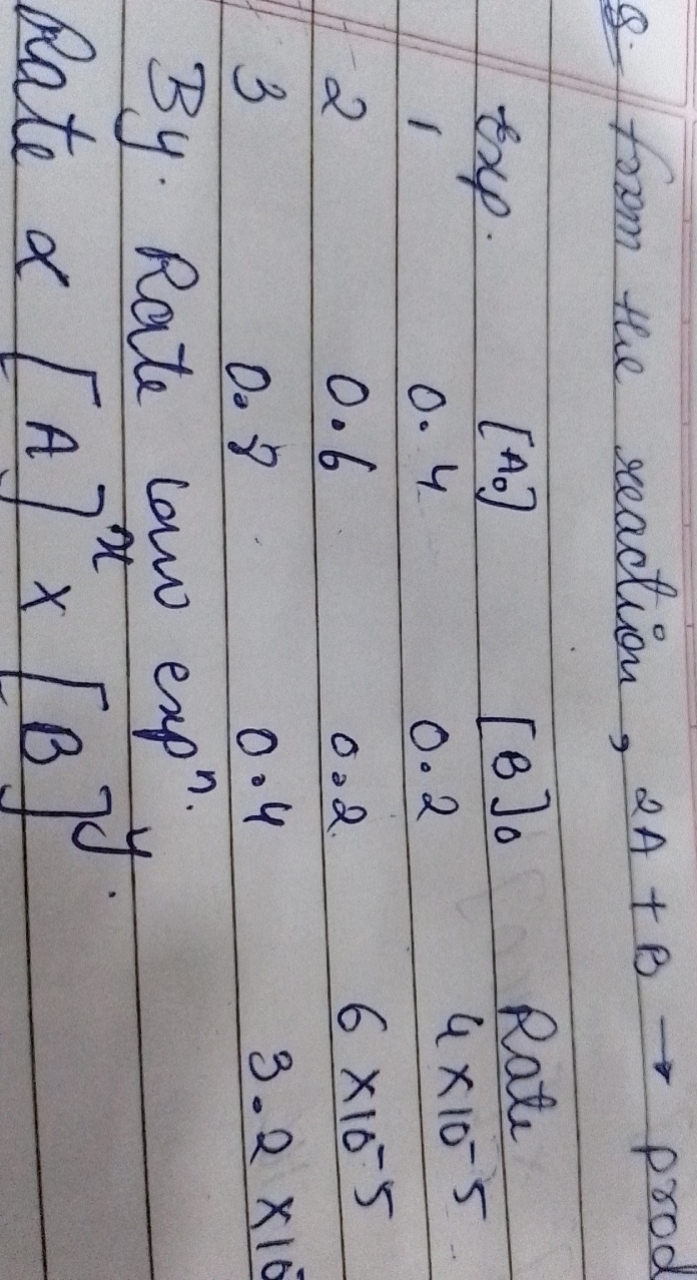 Q. from the reaction, 2A + B → prod
Exp. [A₀] [B]₀ Rate
1 0.4 0.2 4 × 10⁻⁵
2 0.6 0.2 6 × 10⁻⁵
3 0.8 0.4 3.2 × 10
By. Rate law expⁿ.
Rate α [A]ˣ × [B]ʸ.